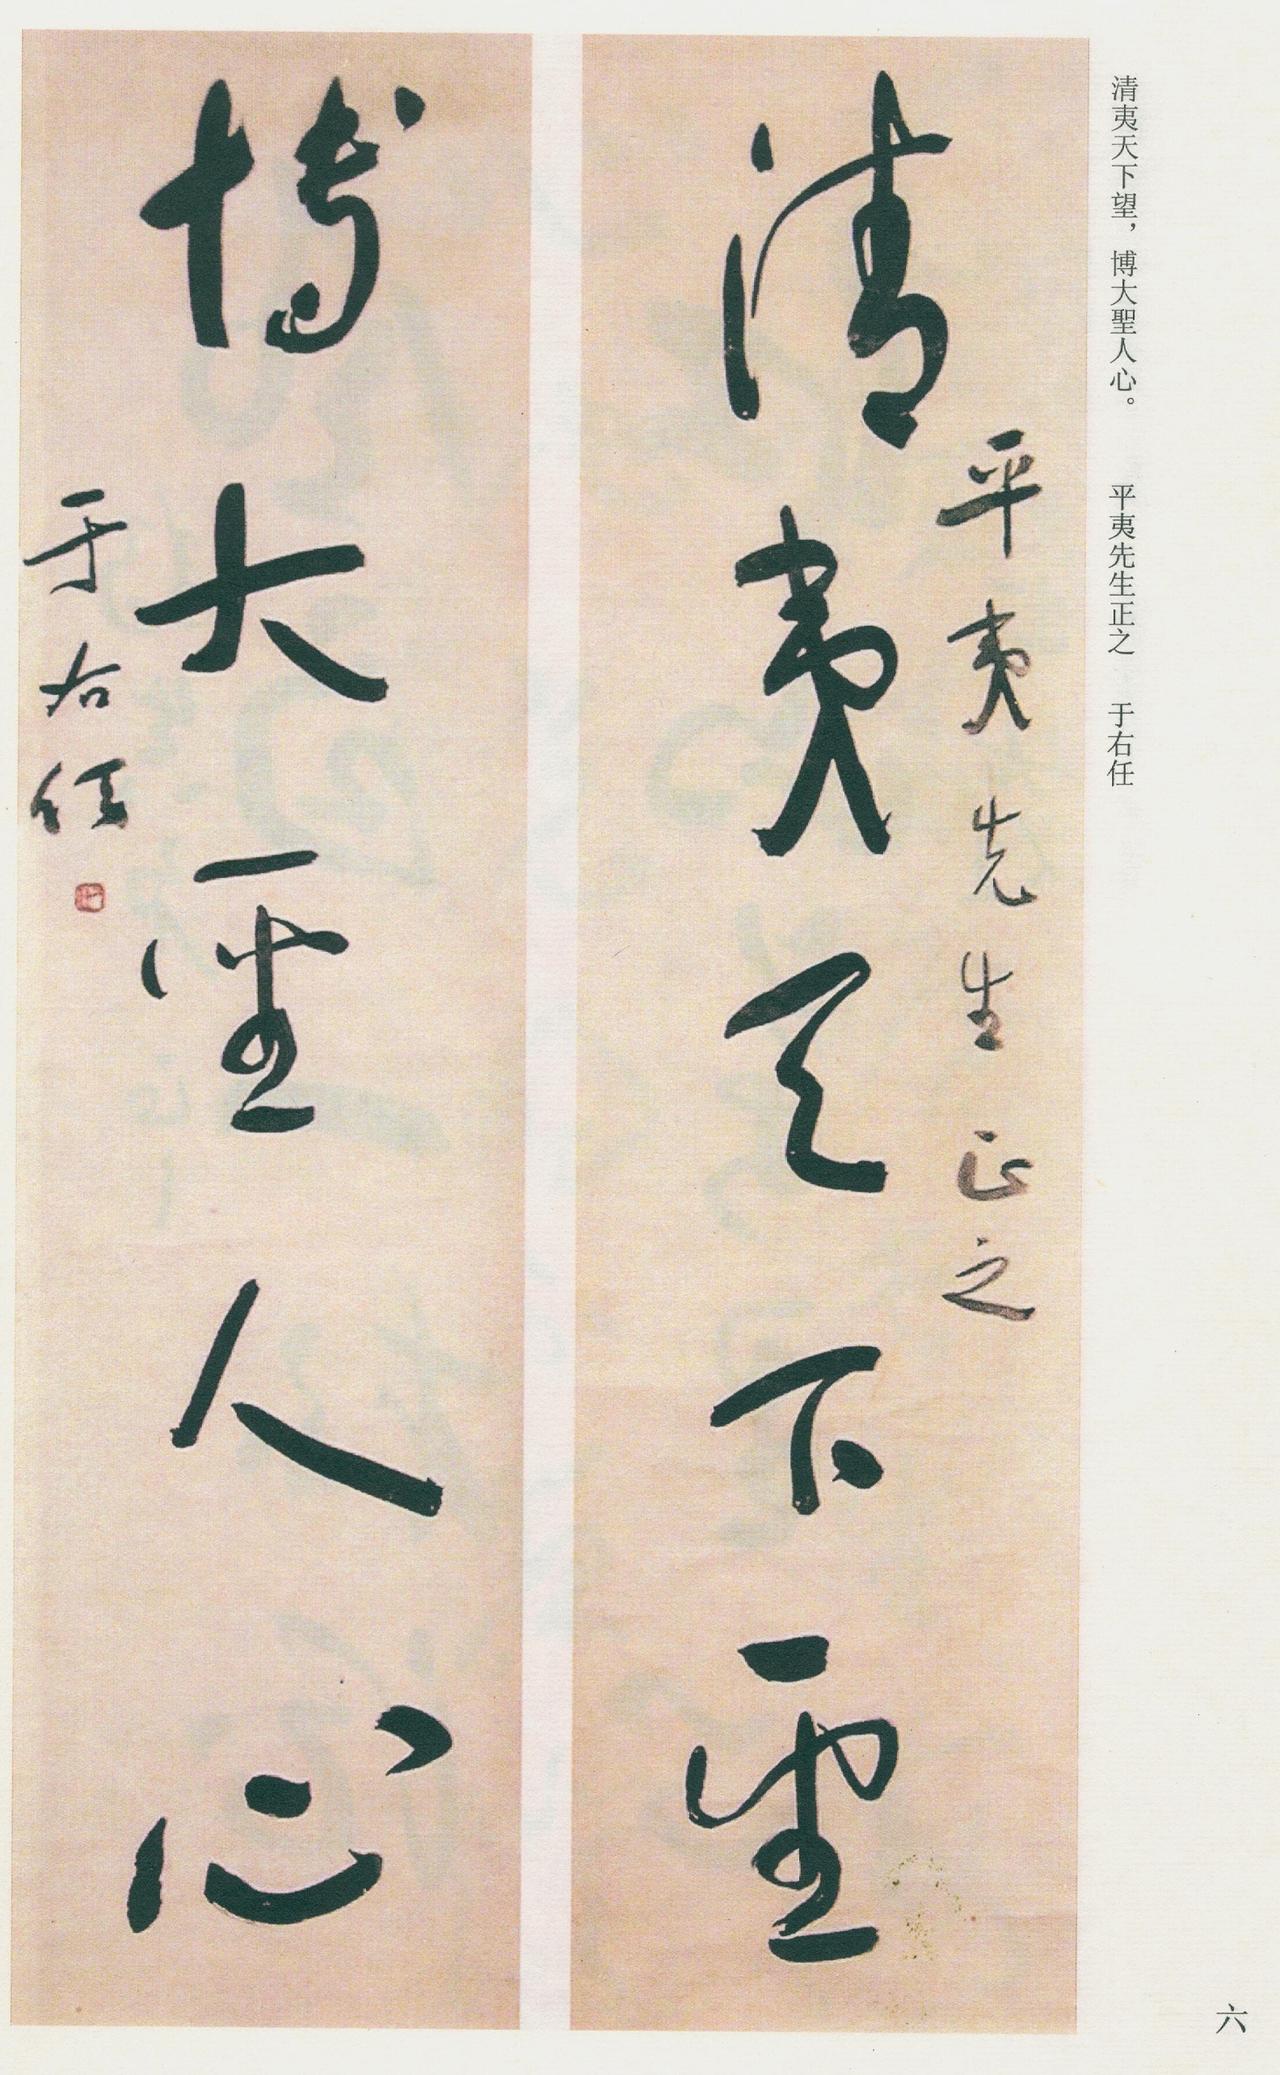 清夷天下望，博大聖人心。 平夷先生正之 于右任
平夷先生正之
清夷天下望
博大聖人心
于右任
六